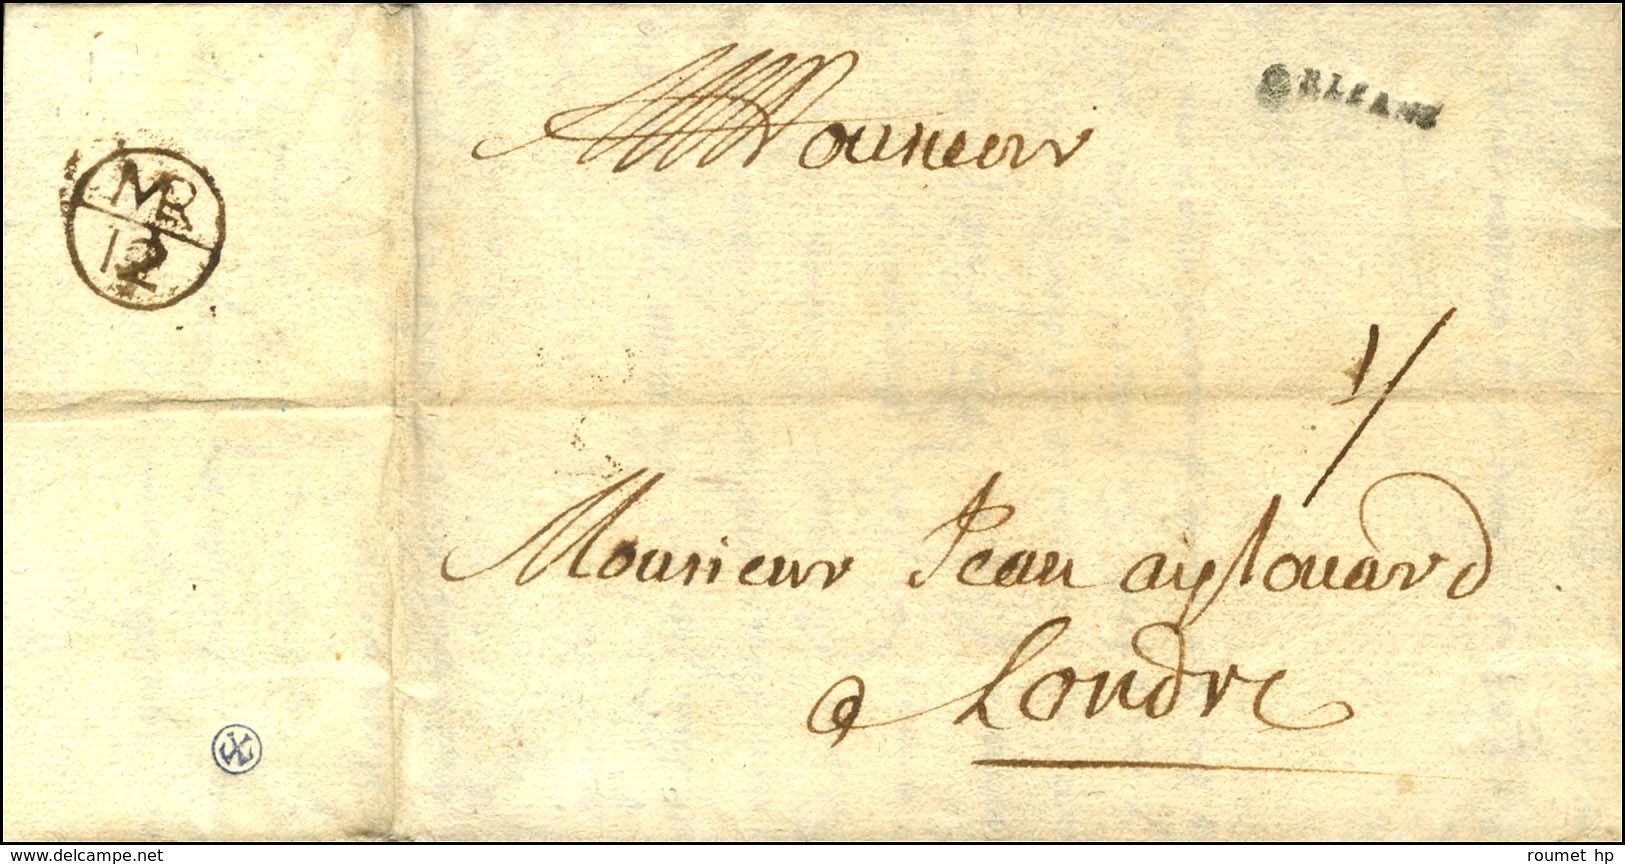 ORLEANS
Monsieur
MA
12
1/
Monsieur Jean aystouard
a Londre
delcampe.net
roumet_hp